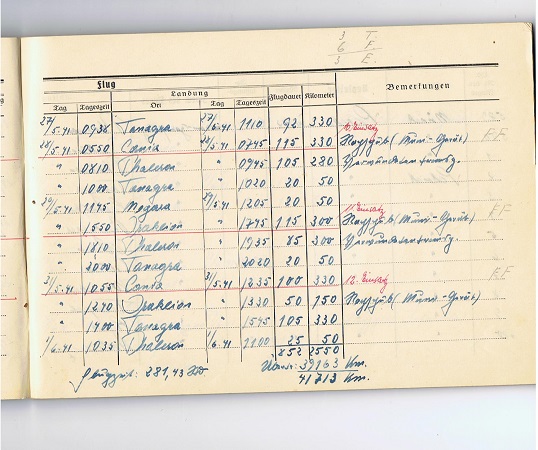 3 T.
6 F.
3 E.
Flug
Landung
Tag Tageszeit Ort Tag Tageszeit Flugdauer Kilometer Bemerkungen
27/5.41 0938 Tanagra 27/5.41 1110 92 330
28/5.41 0550 Canea 28/5.41 0745 115 330 10. Einsatz Nachschub (Muni-Gerät) FF
" 0810 Phaleron " 0945 105 280
" 1000 Tanagra " 1020 20 50
29/5.41 1145 Megara 29/5.41 1205 20 50
" 1550 Iraklion " 1745 115 300 11. Einsatz Nachschub (Muni-Gerät) FF
" 1810 Phaleron " 1935 85 300
" 2000 Tanagra " 2020 20 50
31/5.41 1055 Canea 31/5.41 1235 100 330 12. Einsatz
" 1240 Iraklion " 1330 50 150 Nachschub (Muni-Gerät)
" 1400 Tanagra " 1545 105 330
1/6.41 1035 Phaleron 1/6.41 1100 25 50
852 2550
Flugzeit: 281,43 39163 Km.
41713 Km.